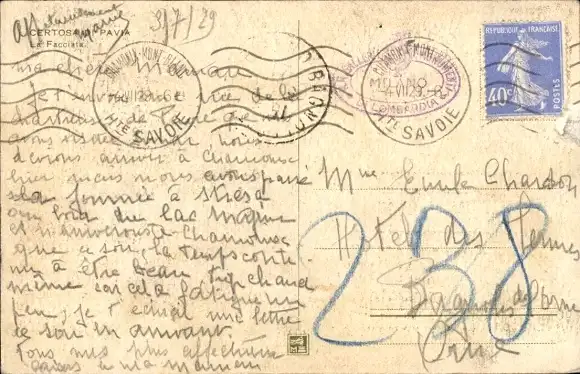 Affectueusement
3/7/29
CERTOSA PAVIA
La Facciata
ma chère Maman
Je t'envoie une vue de la
chartreuse de Pavie que nous
avons visitée hier nous
devions arriver à Chamonix
hier mais nous avons passé
la journée à Stresa
au bord du lac majeur
et n'arriverons à Chamonix
que ce soir, le temps
à être beau trop chaud
même car cela fatigue un
peu, je t'écrirai une lettre
ce soir en arrivant
Tous mes plus affectueux
baisers à ma Maman
CHAMONIX-MONT-BLANC
HTE SAVOIE
CHAMONIX-MONT-BLANC
4 VII 29
HTE SAVOIE
MILANO
LOMBARDIA
REPUBLIQUE FRANÇAISE
40c
POSTES
Mme Emile Chardon
Hotel des Termes
Bagnoles de l'Orne
Orne
238